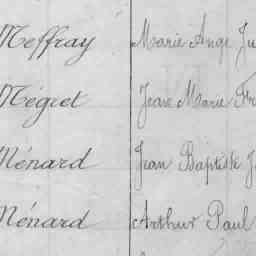 Meffray Marie Ange Ju
Mégret Jean Marie Fr
Ménard Jean Baptiste J
Ménard Arthur Paul